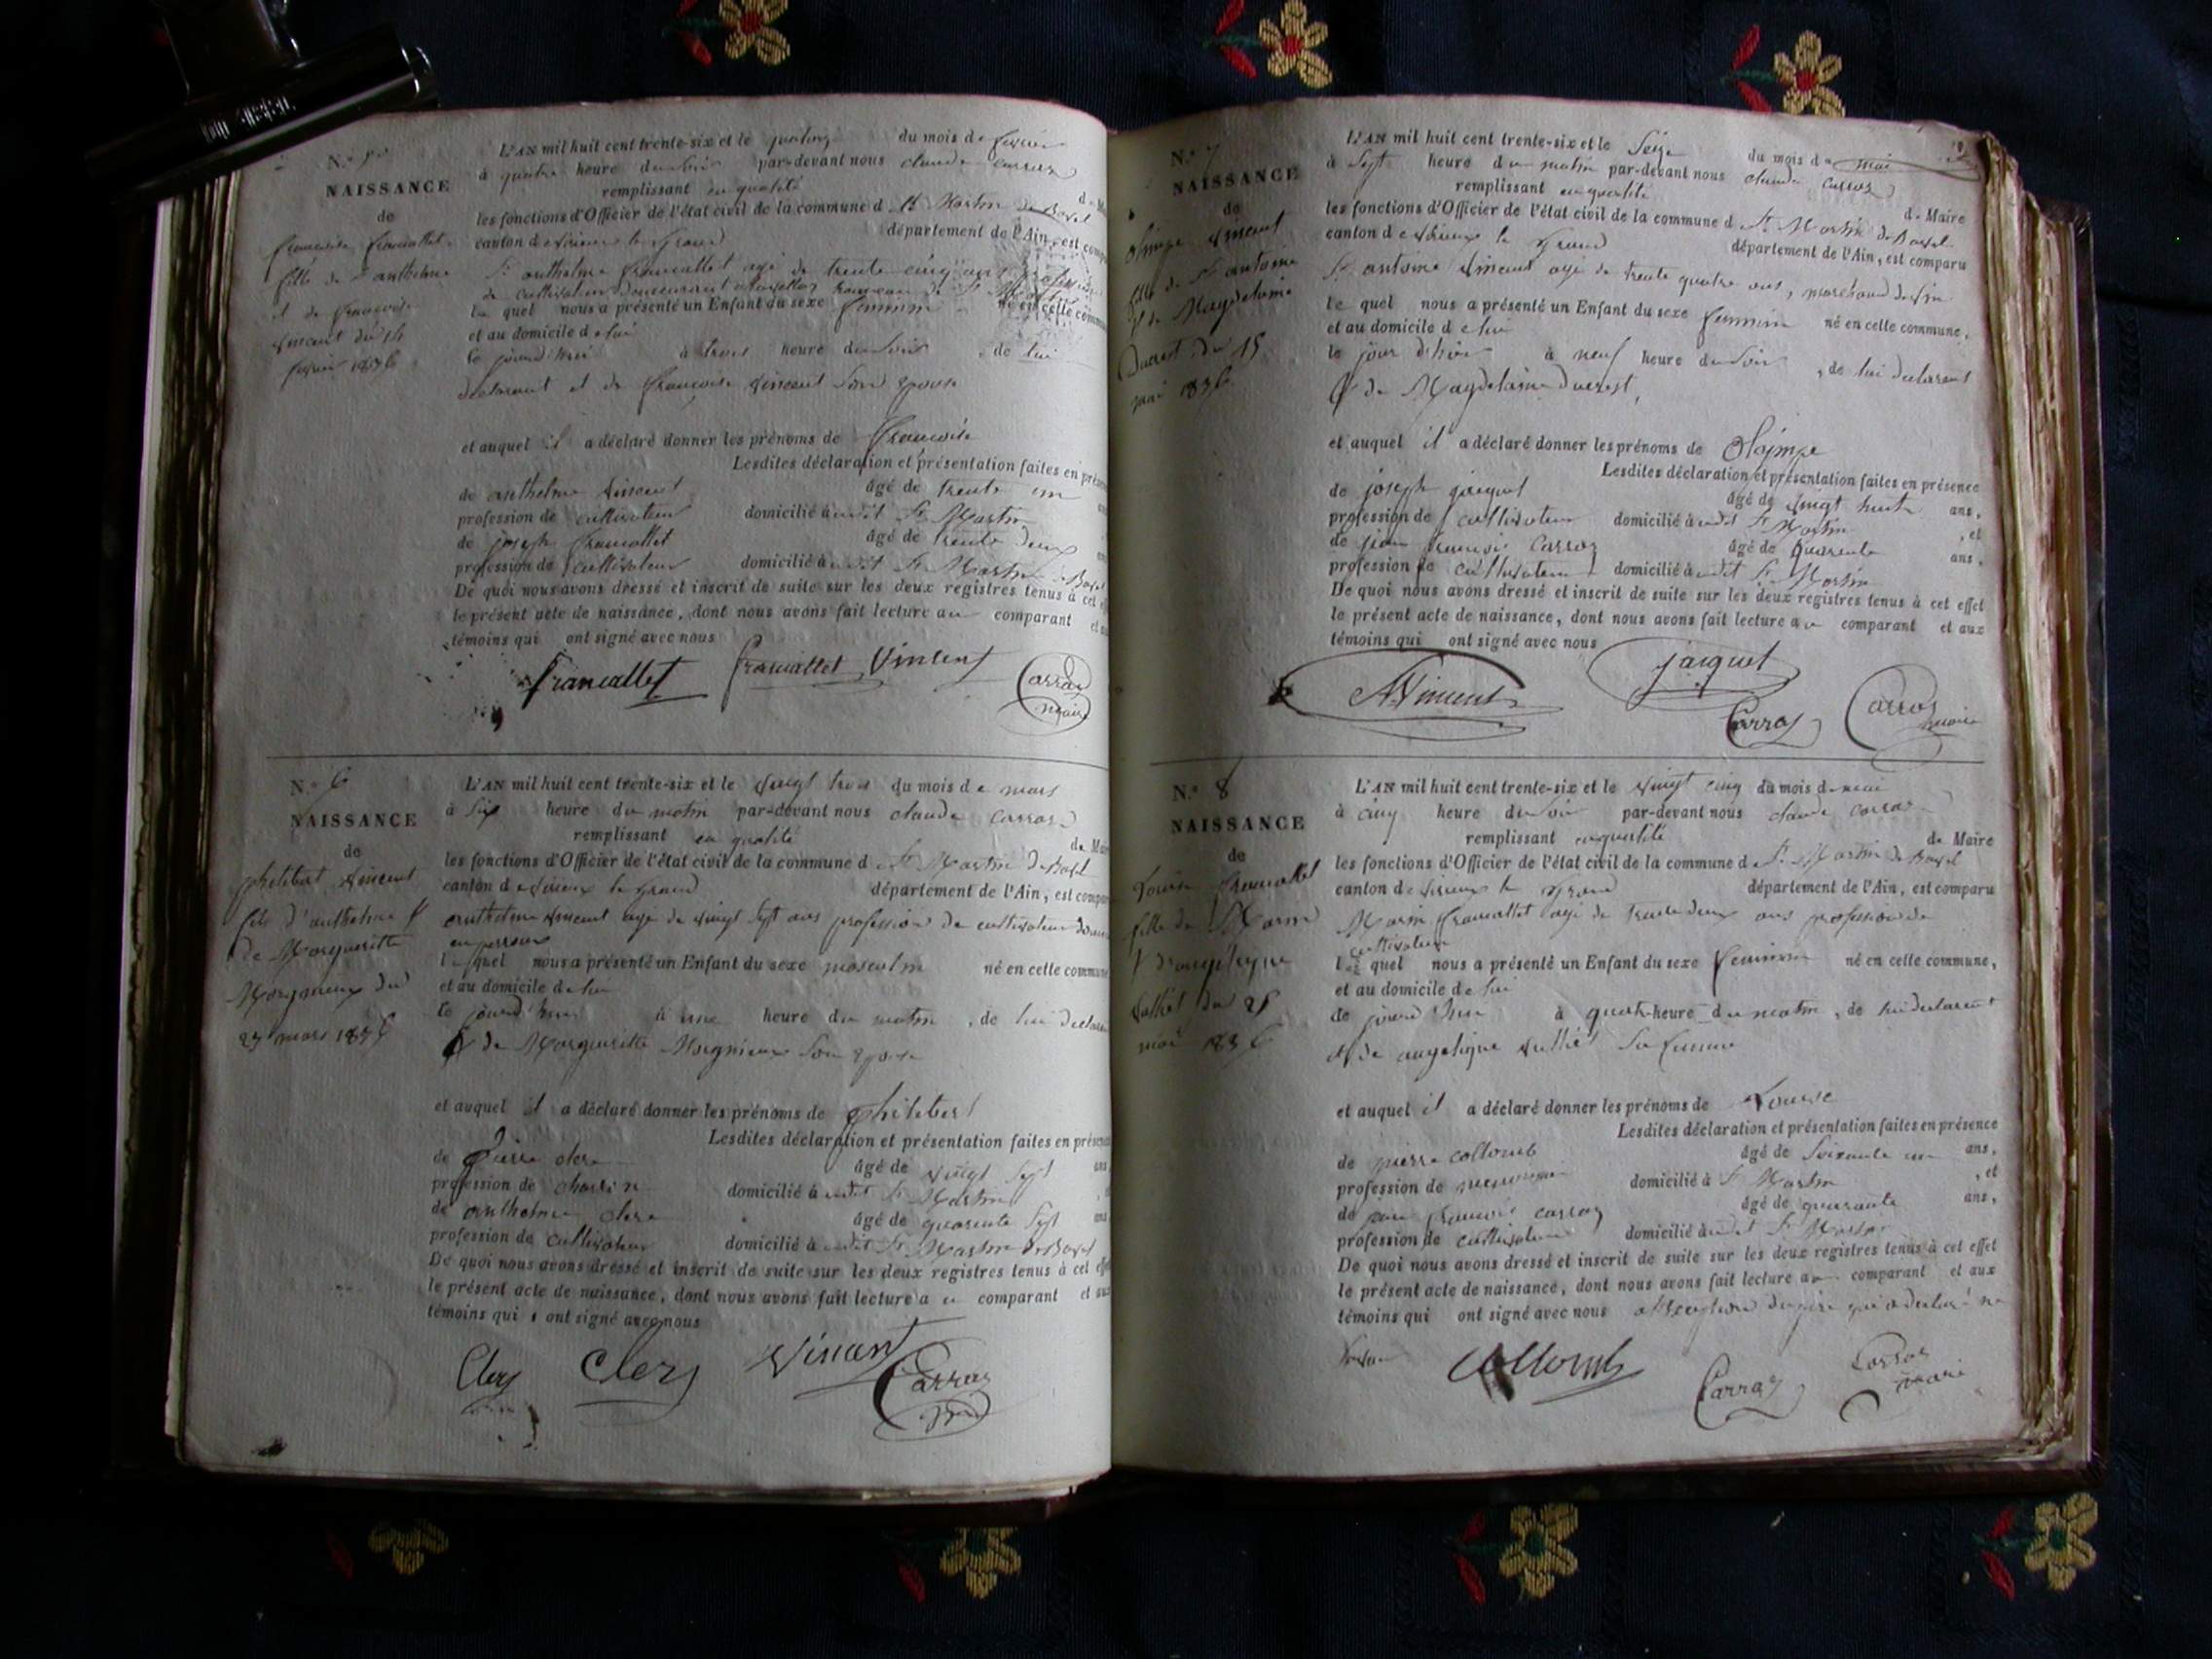 N.º 5
NAISSANCE
de
francoise francallet
fille de anthelme
et de francoise
vincent du 14
fevrier 1836
L'AN mil huit cent trente-six et le quatorze du mois de fevrier
à quatre heure du soir par-devant nous claude carraz
remplissant en qualité d. Mai
les fonctions d'Officier de l'état civil de la commune d. St Martin de Bavel
canton de virieux le grand département de l'Ain, est comp
Sr anthelme francallet agé de trente cinq ans profession
de cultivateur demeurant
le quel nous a présenté un Enfant du sexe feminin né en celle commu
et au domicile de lui
le jourd'hui à trois heure du soir , de lui
declarant et de francoise vincent son epouse
et auquel il a déclaré donner les prénoms de francoise
Lesdites déclaration et présentation faites en prés
de anthelme vincent âgé de trente un
profession de cultivateur domicilié à udit St Martin
de joseph francallet âgé de trente deux
profession de cultivateur domicilié à udit St Martin de Bavel
De quoi nous avons dressé et inscrit de suite sur les deux registres tenus à cet
le présent acte de naissance, dont nous avons fait lecture au comparant et au
témoins qui ont signé avec nous
francallet francallet Vincent Carraz
maire
N.º 6
NAISSANCE
de
philibert vincent
fils d'anthelme et
de Margueritte
Morgnieux du
23 mars 1836
L'AN mil huit cent trente-six et le vingt trois du mois de mars
à six heure du matin par-devant nous claude carraz
remplissant en qualité de Mai
les fonctions d'Officier de l'état civil de la commune d. St Martin de Bavel
canton de virieux le grand département de l'Ain, est compar
anthelme vincent agé de vingt sept ans profession de cultivateur
le quel nous a présenté un Enfant du sexe masculin né en celle commune
et au domicile de lui
le jourd'hui à une heure du matin , de lui declara
et de Margueritte Morgnieux son epouse
et auquel il a déclaré donner les prénoms de philibert
Lesdites déclaration et présentation faites en présence
de pierre clerc âgé de vingt sept ans
profession de domicilié à udit St Martin
de anthelme clerc âgé de quarante sept ans
profession de cultivateur domicilié à udit St Martin de Bavel
De quoi nous avons dressé et inscrit de suite sur les deux registres tenus à cet effe
le présent acte de naissance, dont nous avons fait lecture a u comparant et aux
témoins qui ont signé avec nous
Clerc Clerc Vincent
Carraz
N.º 7
NAISSANCE
de
olimpe vincent
fille de Sr antoine
et de Magdelaine
Ducrest du 15
mai 1836
L'AN mil huit cent trente-six et le seize du mois de mai
à sept heure du matin par-devant nous claude carraz
remplissant en qualité de Maire
les fonctions d'Officier de l'état civil de la commune d St Martin de Bavel
canton de virieux le grand département de l'Ain, est comparu
Sr antoine vincent agé de trente quatre ans, marchand de vin
le quel nous a présenté un Enfant du sexe feminin né en celle commune,
et au domicile de lui
le jour d'hier à neuf heure du soir , de lui declarent
et de Magdelaine Ducrest,
et auquel il a déclaré donner les prénoms de Olajmpe
Lesdites déclaration et présentation faites en présence
de joseph jacquet âgé de vingt huit ans,
profession de cultivateur domicilié à udit St Martin , et
de jean francois Carraz âgé de quarente ans,
profession de cultivateur domicilié à udit St Martin
De quoi nous avons dressé et inscrit de suite sur les deux registres tenus à cet effet
le présent acte de naissance, dont nous avons fait lecture a u comparant et aux
témoins qui ont signé avec nous
A. Vincent jacquet
Carraz Carraz
maire
N.º 8
NAISSANCE
de
Louise francallet
fille de Marin
et d'angelique
vulliet du 25
mai 1836
L'AN mil huit cent trente-six et le vingt cinq du mois de mai
à cinq heure du soir par-devant nous claude carraz
remplissant en qualité de Maire
les fonctions d'Officier de l'état civil de la commune d. St Martin de Bavel
canton de virieux le grand département de l'Ain, est comparu
Marin francallet agé de trente deux ans profession de
cultivateur
le quel nous a présenté un Enfant du sexe feminin né en celle commune,
et au domicile de lui
le jourd'hui à quatre heure du matin , de lui declarent
et de angelique vulliet sa femme
et auquel il a déclaré donner les prénoms de Louise
Lesdites déclaration et présentation faites en présence
de pierre collomb âgé de soixante un ans,
profession de domicilié à St Martin , et
de jean francois carraz âgé de quarante ans,
profession de cultivateur domicilié à udit St Martin
De quoi nous avons dressé et inscrit de suite sur les deux registres tenus à cet effet
le présent acte de naissance, dont nous avons fait lecture a u comparant et aux
témoins qui ont signé avec nous a l'exception du père qui a declaré ne
Collomb Carraz Carraz
maire